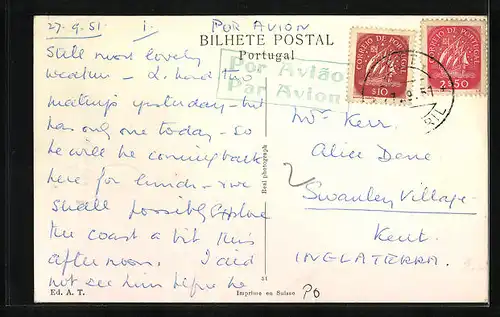 27.9.51. 1. POR AVION
BILHETE POSTAL
Portugal
Por Avião
Par Avion
CORREIO DE PORTUGAL
$10
CORREIO DE PORTUGAL
2$50
Still most lovely
weather - L. had two
meetings yesterday - but
has only one today - so
he will be coming back
here for lunch - & we
shall possibly explore
the coast a bit this
afternoon. I did
not see him before he
Mrs Kerr.
Alice Dene
Swanley Village
Kent.
INGLATERRA.
Real photograph
31
Ed. A. T.
Imprimé en Suisse